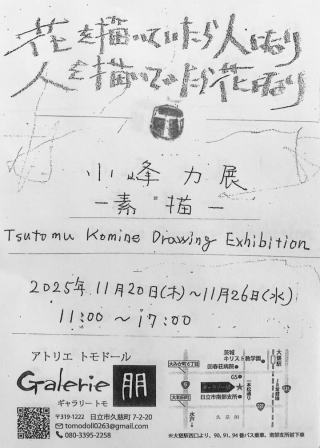 花を描いていたら人になり
人を描いていたら花になり
小峰力展
―素描―
Tsutomu Komine Drawing Exhibition
2025年11月20日(木)~11月26日(水)
11:00~17:00
アトリエ トモドール
Galerie 朋
ギャラリートモ
〒319-1222 日立市久慈町 7-2-20
tomodoll0263@gmail.com
080-3395-2258
茨城
キリスト教学園
回春荘病院
GS
日立市南部支所
大みか町6丁目
大甕駅
水戸
久慈川
※大甕駅西口より、90,91,94番バス乗車、南部支所前下車